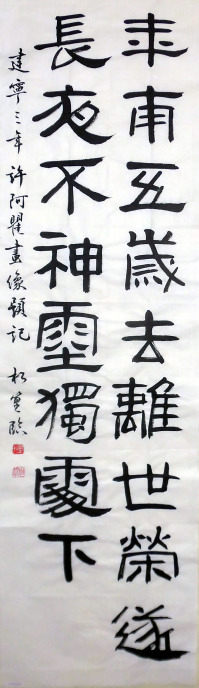 年甫五歲去離世榮遂
長夜不神靈獨處下
建寧三年 許阿瞿畫像題記 松 臨